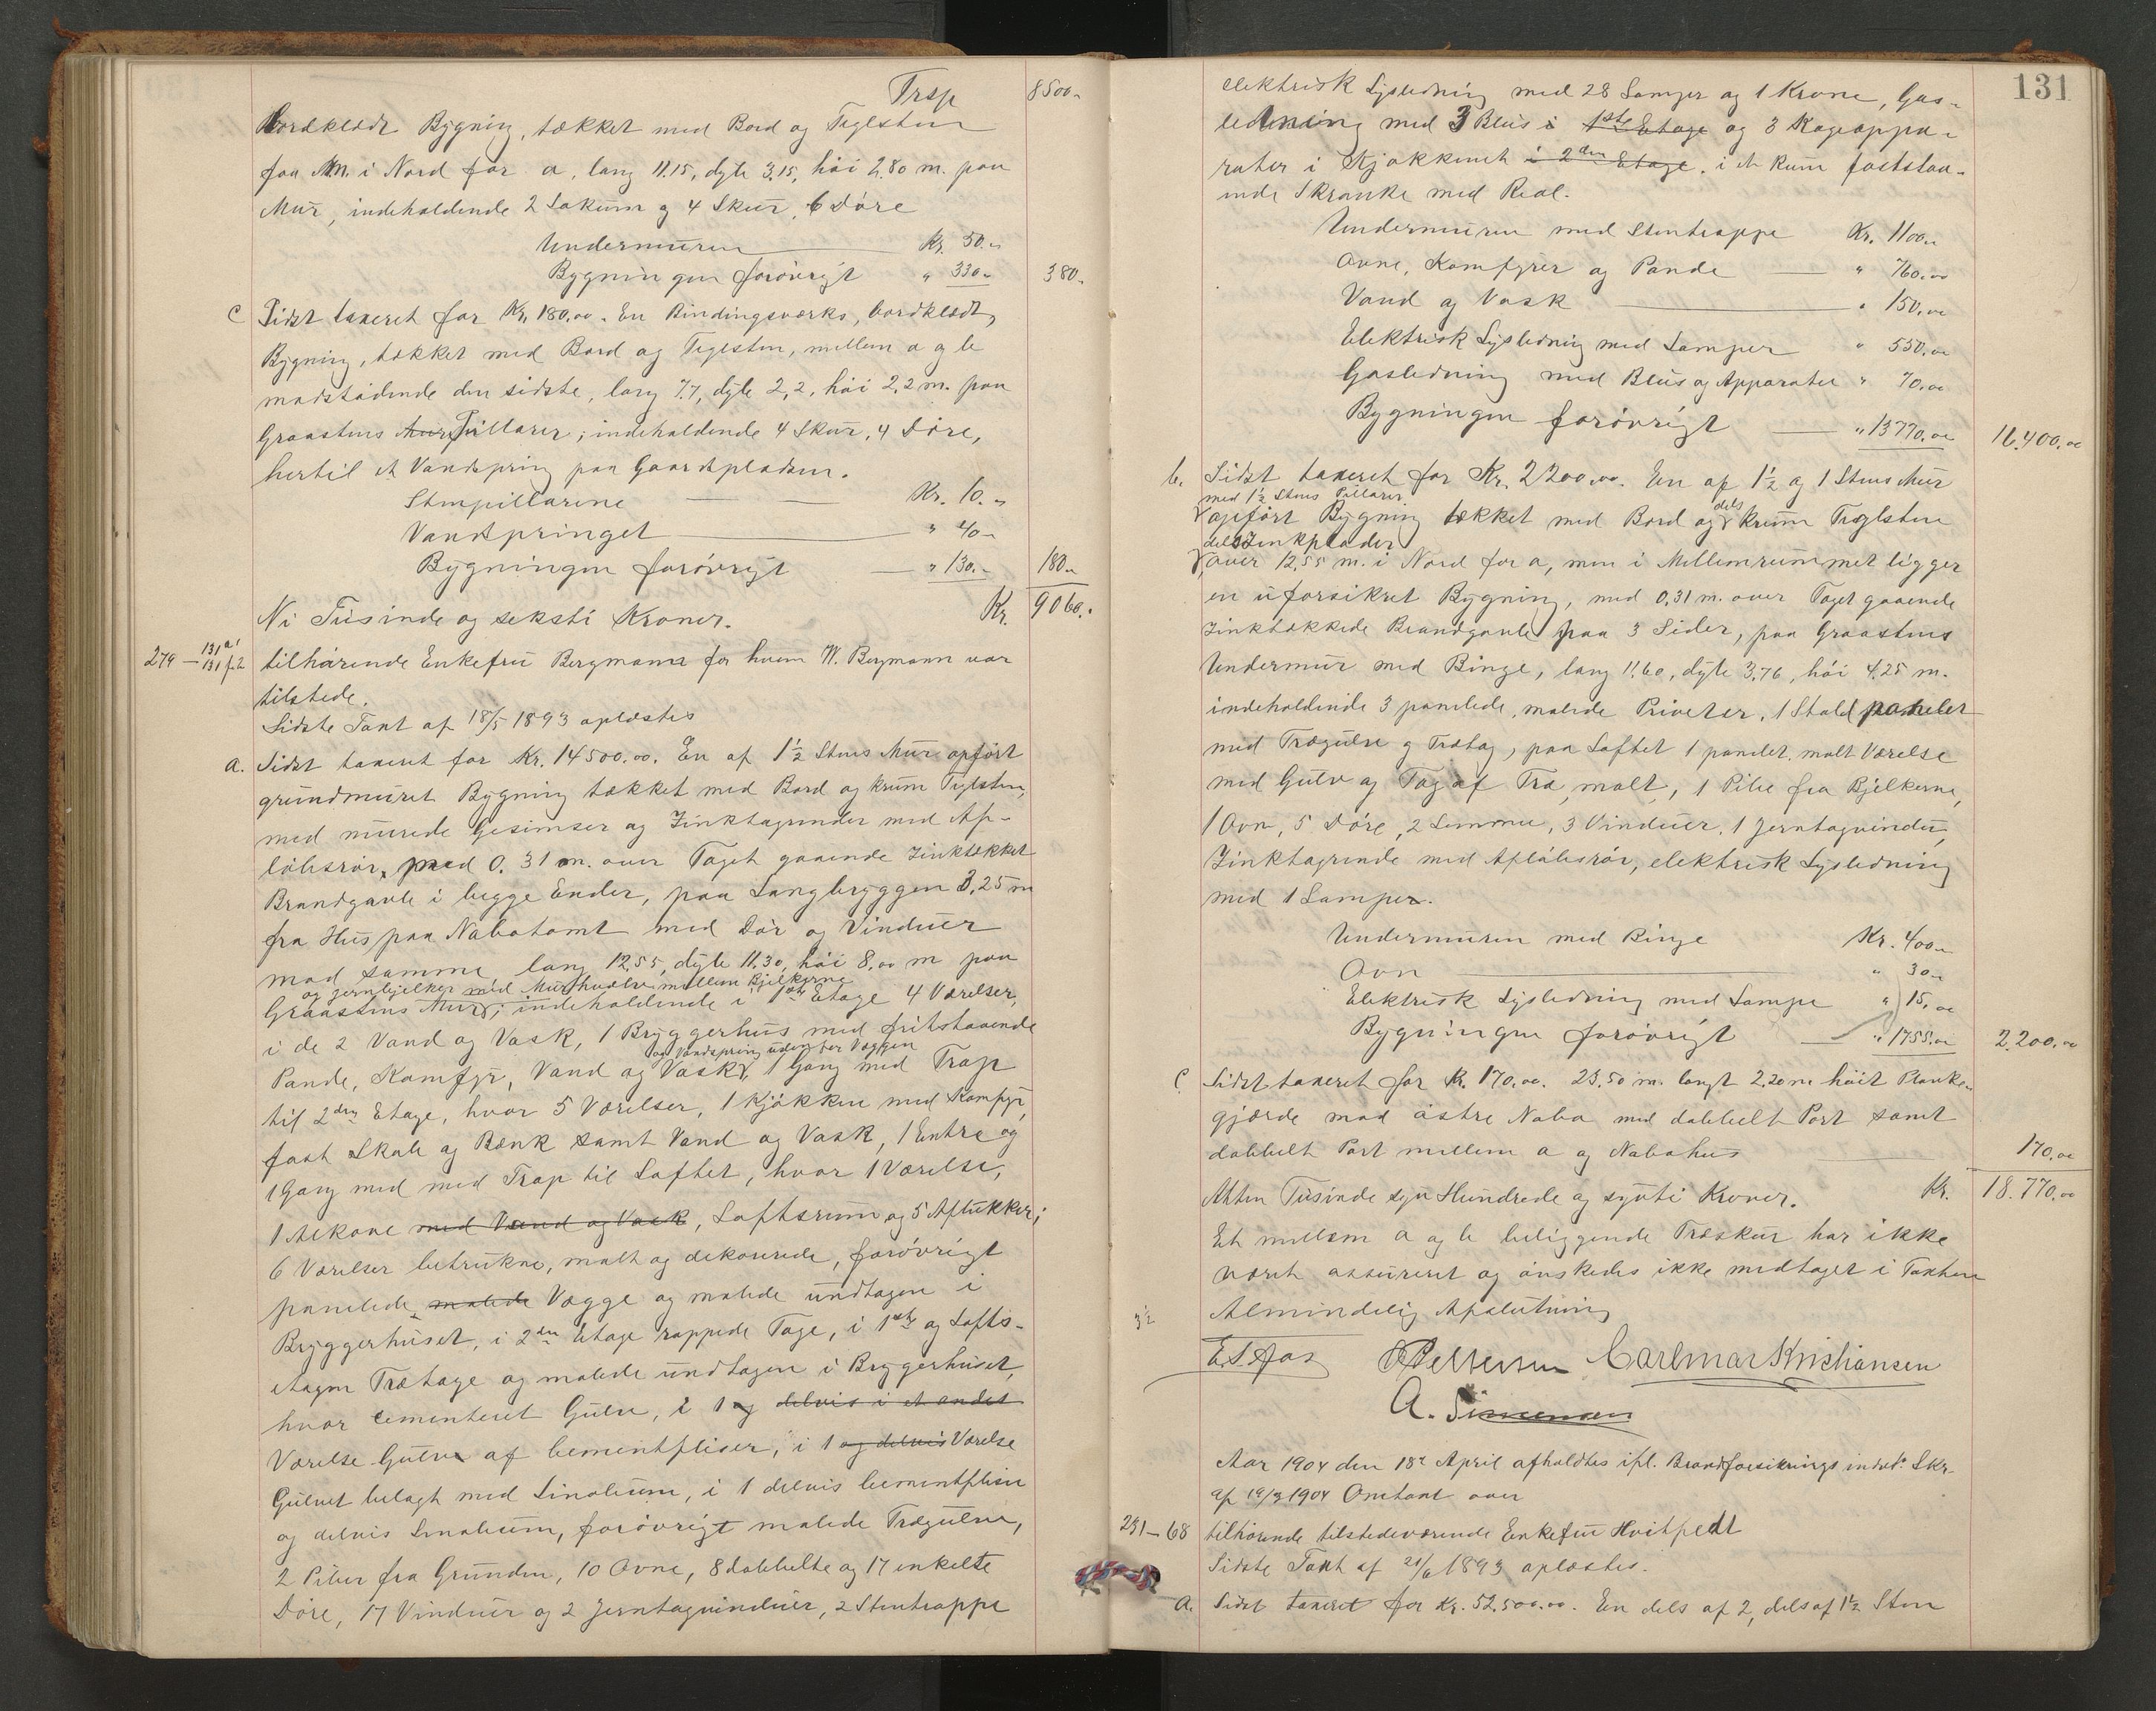 Trsp 8500.-
Bordklædt Bygning, tækket med Bord og Teglsten
faa Mm. i Nord for a, lang 11.15, dyb 3.15, höi 2.80 m. paa
Mur, indeholdende 2 Lokum og 4 Skur, 6 Döre
Undermuren Kr. 50.-
Bygningen forövrigt " 330.- 380.-
c Sidst taxeret for Kr. 180.00. En Bindingsværks, bordklædt,
Bygning, tækket med Bord og Teglsten, mellem a og b
modstödende den sidste, lang 7.7, dyb 2,2, höi 2,2 m. paa
Graastens Mur Pillarer; indeholdende 4 Skur, 4 Döre,
hertil et Vandspring paa Gaardspladsen.
Stenpillarene Kr. 10.-
Vandspringet " 40.-
Bygningen forövrigt " 130.- 180.-
Ni Tusinde og seksti Kroner. Kr. 9060.-
279 — 131 a1
131 f. 2 tilhörende Enkefru Bergmann for hvem W. Bergmann var
tilstede.
Sidste Taxt af 18/5 1893 oplæstes
a. Sidst taxeret for Kr. 14500.00. En af 1½ Stens Mur opfört
grundmuret Bygning tækket med Bord og krum Teglsten,
med murede Gesimser og Zinktagrender med Af-
löbsrör, med 0.31 m. over Taget gaaende Zinktækket
Brandgavle i begge Ender, paa Langbryggen 3,25 m
fra Hus paa Nabotomt med Dör og Vinduer
mod samme, lang 12,55, dyb 11.30, höi 8,00 m paa
og Jernbjelker med Murhvælv mellem Bjelkerne
Graastens Mur; indeholdende i 1ste Etage 4 Værelser,
i de 2 Vand og Vask, 1 Bryggerhus med fritstaaende
og Vandspring udenfor Væggen
Pande, Komfyr, Vand og Vask, 1 Gang med Trap
til 2den Etage, hvor 5 Værelser, 1 Kjökken med Komfyr,
fast Skab og Bænk samt Vand og Vask, 1 Entre og
1 Gang med med Trap til Loftet, hvor 1 Værelse,
1 Alkove med Vand og Vask, Loftsrum og 5 Aflukker;
6 Værelser betrukne, malt og dekorerede, forövrigt
panelede malede Vægge og malede undtagen i
Bryggerhuset, i 2den Etage rappede Tage, i 1ste og Lofts-
etagen Trætage og malede undtagen i Bryggerhuset,
hvor cementeret Gulv, i 1 og delvis i et andet
Værelse Gulve af Cementfliser, i 1 og delvis Værelse
Gulvet belagt med Linoleum, i 1 delvis Cementfliser
og delvis Linoleum, forövrigt malede Trægulve,
2 Piber fra Grunden, 10 Ovne, 8 dobbelte og 17 enkelte
Döre, 17 Vinduer og 2 Jerntagvinduer, 2 Stentrappe
131
elektrisk Lysledning med 28 Lamper og 1 Krone, Gas-
ledning med 3 Blus i 1ste Etage og 3 Kogeappa-
rater i Kjökkenet i 2den Etage, i et Rum faststaa-
ende Skranke med Reol.
Undermuren med Stentrappe Kr. 1100.00
Ovne, Komfyrer og Pande " 760.00
Vand og Vask " 150.00
Elektrisk Lysledning med Lamper " 550.00
Gasledning med Blus og Apparater " 70.00
Bygningen forövrigt " 13770.00 16.400.00
b. Sidst taxeret for Kr. 2200.00. En af 1½ og 1 Stens Mur
med 1½ Stens Pillarer
opfört Bygning tækket med Bord og dels krum Teglsten
dels Zinkplader
over 12,55 m. i Nord for a, men i Mellemrummet ligger
en uforsikret Bygning, med 0,31 m. over Taget gaaende
Zinktækkede Brandgavle paa 3 Sider, paa Graastens
Undermur med Binge, lang 11,60, dyb 3,76, höi 4,25 m.
indeholdende 3 panelede, malede Priveter, 1 Stald panelet
med Trægulve og Trætag, paa Loftet 1 panelet, malt Værelse
med Gulv og Tag af Træ, malt, 1 Pibe fra Bjelkerne,
1 Ovn, 5 Döre, 2 Lemme, 3 Vinduer, 1 Jerntagvindu,
Zinktagrende med Aflöbsrör, elektrisk Lysledning
med 1 Lampe.
Undermuren med Binge Kr. 400.-
Ovn " 30.-
Elektrisk Lysledning med Lampe " 15.00
Bygningen forövrigt " 1755.00 2.200.00
c Sidst taxeret for Kr. 170.00. 23.50 m. langt 2,20 m höit Planke-
gjærde mod östre Nabo med dobbelt Port samt
dobbelt Port mellem a og Nabohus 170.00
Atten Tusinde syv Hundrede og sytti Kroner. Kr. 18.770.00
Et mellem a og b beliggende Træskur har ikke
været assureret og önskedes ikke medtaget i Taxten
Almindelig Afslutning
Carlmar Kristiansen
A. Simensen
Aar 1904 den 18de April afholdtes ifl. Brandforsikrings indst. Skr.
af 19/3 1904 Omtaxt over
231 — 68 tilhörende tilstedeværende Enkefru Hvitfeldt
Sidste Taxt af 21/6 1893 oplæstes.
a. Sidst taxeret for Kr. 52.500.00. En dels af 2, dels af 1½ Sten